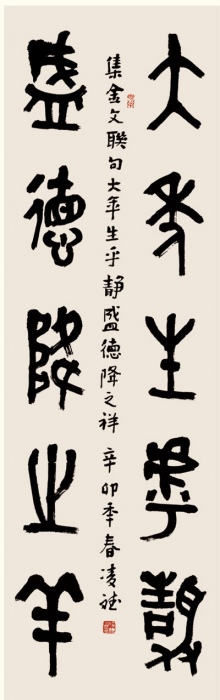 大年生乎静
集金文联句大年生乎静盛德降之祥 辛卯季春凌斌
盛德降之羊